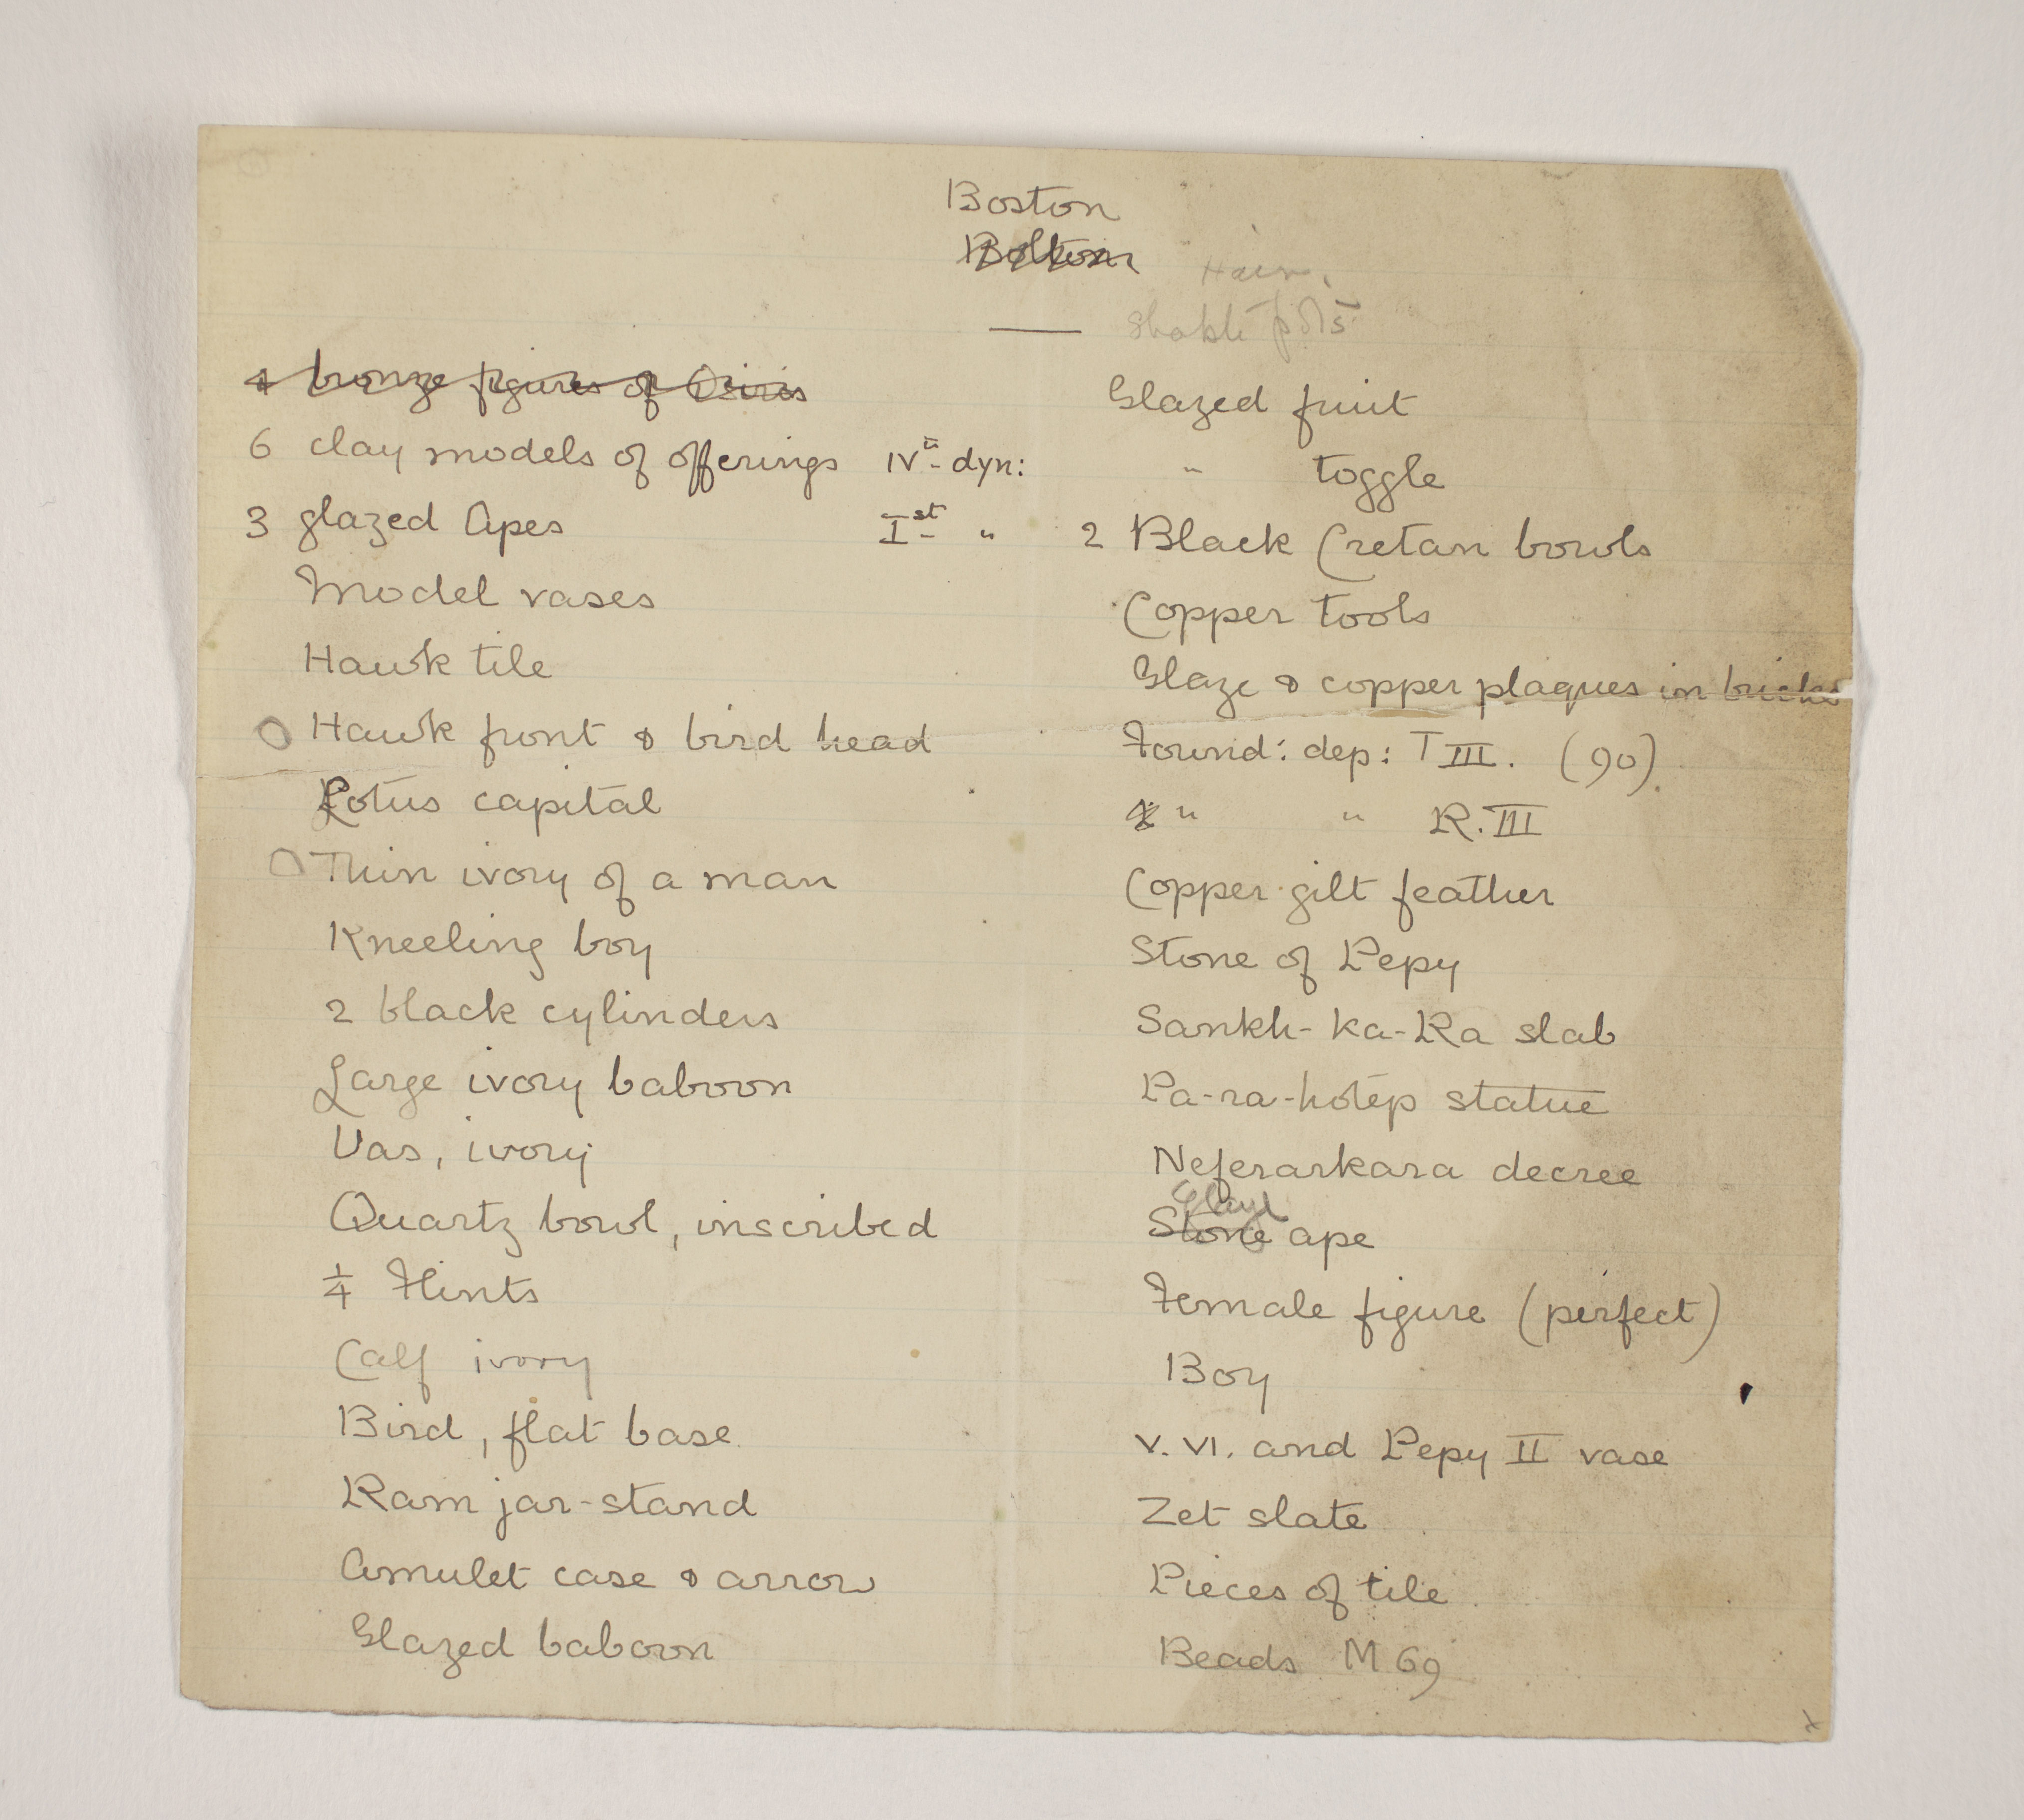 Boston
Bolton
pots
4 bronze figures of Osiris
6 clay models of offerings IVth dyn:
3 glazed Apes Ist "
Model vases
Hawk tile
Hawk front & bird head
Lotus capital
Thin ivory of a man
Kneeling boy
2 black cylinders
Large ivory baboon
Uas, ivory
Quartz bowl, inscribed
1/4 Flints
Calf ivory
Bird, flat base
Ram jar-stand
Amulet case & arrow
Glazed baboon
Glazed fruit
" toggle
2 Black Cretan bowls
Copper tools
Glaze & copper plaques in bricks
Found: dep: T III. (90).
" " R.III
Copper gilt feather
Stone of Pepy
Sankh-ka-Ra slab
Pa-ra-hotep statue
Neferarkara decree
Glazd
Stone ape
Female figure (perfect)
Boy
V. VI. and Pepy II vase
Zet slate
Pieces of tile
Beads M 69